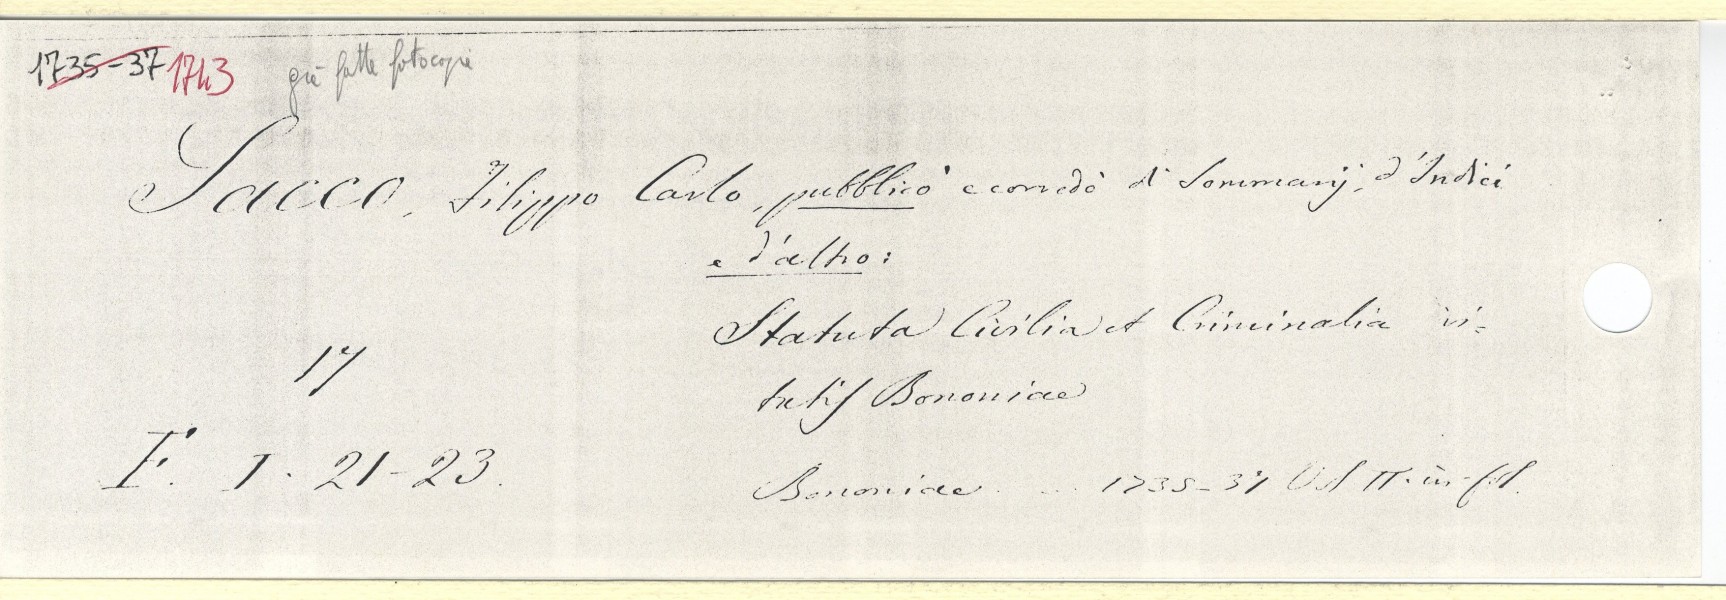 1735-37 1743 già fatte fotocopie
Sacco, Filippo Carlo, pubblicò e corredò di Sommarij, d'Indici
e d'altro:
Statuta Civilia et Criminalia Ci-
vitatis Bononiae
17
F. I. 21-23.
Bononiae 1735-37 Vol II. in-fol.